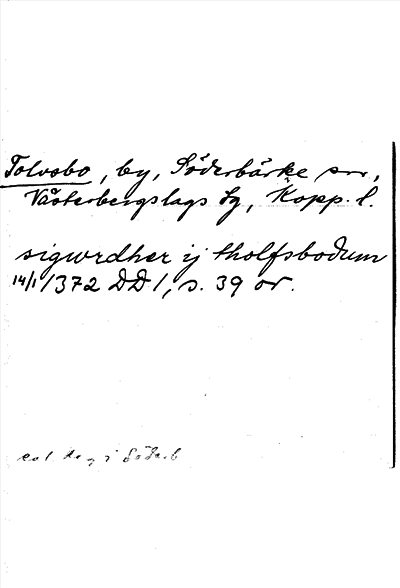 Tolvsbo, by, Söderbärke sn,
Västerbergslags hg, Kopp. l.
sigwrdher ij tholfsbodum
14/1 1372 DD 1, s. 39 or.
enl. i Söderb